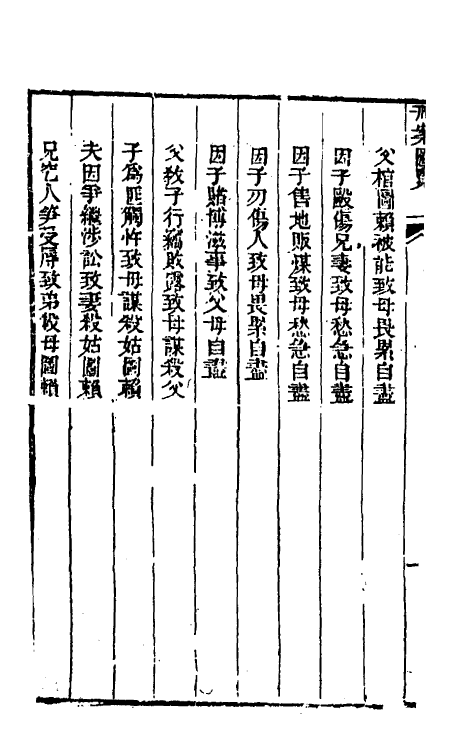 父棺圖賴被毆致母畏累自盡
因子毆傷兄妻致母愁急自盡
因子售地販煤致母愁急自盡
因子刃傷人致母畏累自盡
因子賭博滋事致父母自盡
父教子行竊敗露致母謀殺父
子為匪觸忤致母謀殺姑圖賴
夫因爭繼涉訟致妻殺姑圖賴
兄挖人笋受辱致弟殺母圖賴